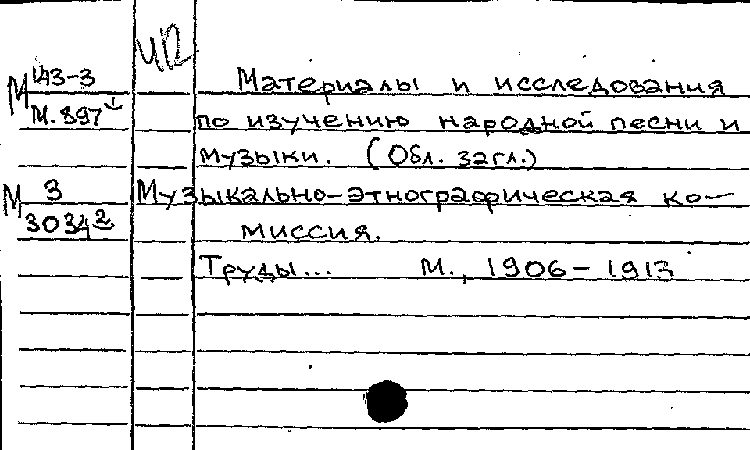 ЧР
М 143-3
М. 897
Материалы и исследования
по изучению народной песни и
музыки. (Обл. загл.)
М 3
30342
Музыкально-этнографическая ко-
миссия.
Труды... М., 1906-1913